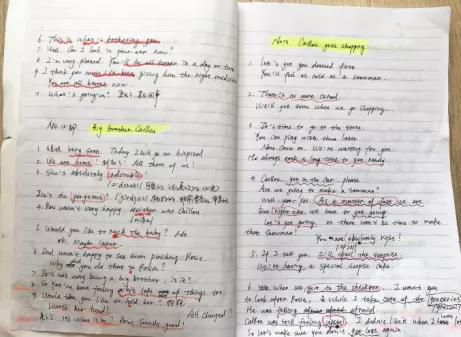 6. This is what's bothering you
7. Well. Can I look in your ear now?
8. I'm very pleased. You'll be all better in a day or two
9. I think you giving him the right medicine
You are all better now.
10. What's going on?
No.12 Big Brother Caillou
1. very soon. Today I will go to hospital
2. We are home! All three of us!
3. She's absolutely adorable
Isn't she gorgeous!
4. Rosie wasn't very happy neither was Caillou
5. Would you like to rock the baby? No.
oh. Maybe later.
6. Dad wasn't happy to see him pinching Rosie.
Why did you do that to Rosie?
7. It's not easy being a big brother, is it?
8. So you've been feeling a little left out of things too.
9. Would you like to hold her?
Watch her head!
All changed?
Rosie smells good!
No.13. Caillou goes shopping
1. Let's get you dressed first
You'll feel as cold as a snowman.
2. There's no more cereal.
We'll get some when we go shopping.
3. It's time to go to the store
You can play with them later
Now come on. We're waiting for you
He always took a long time to get ready
4. Caillou, get in the car, please
Are we going to make a snowman?
Well, yes. As a matter of fact we are
But right now we have to get going
Let's get going, or there won't be time to make
that snowman!
You are absolutely right!
5. If I tell you, it'll spoil the surprise
We're having a special surprise cake.
6. When we get to the checkout, I want you
to look after Rosie, while I take care of the groceries
He was feeling afraid
Caillou was still feeling upset. I didn't like it when I was lost
So let's make sure you don't get lost again